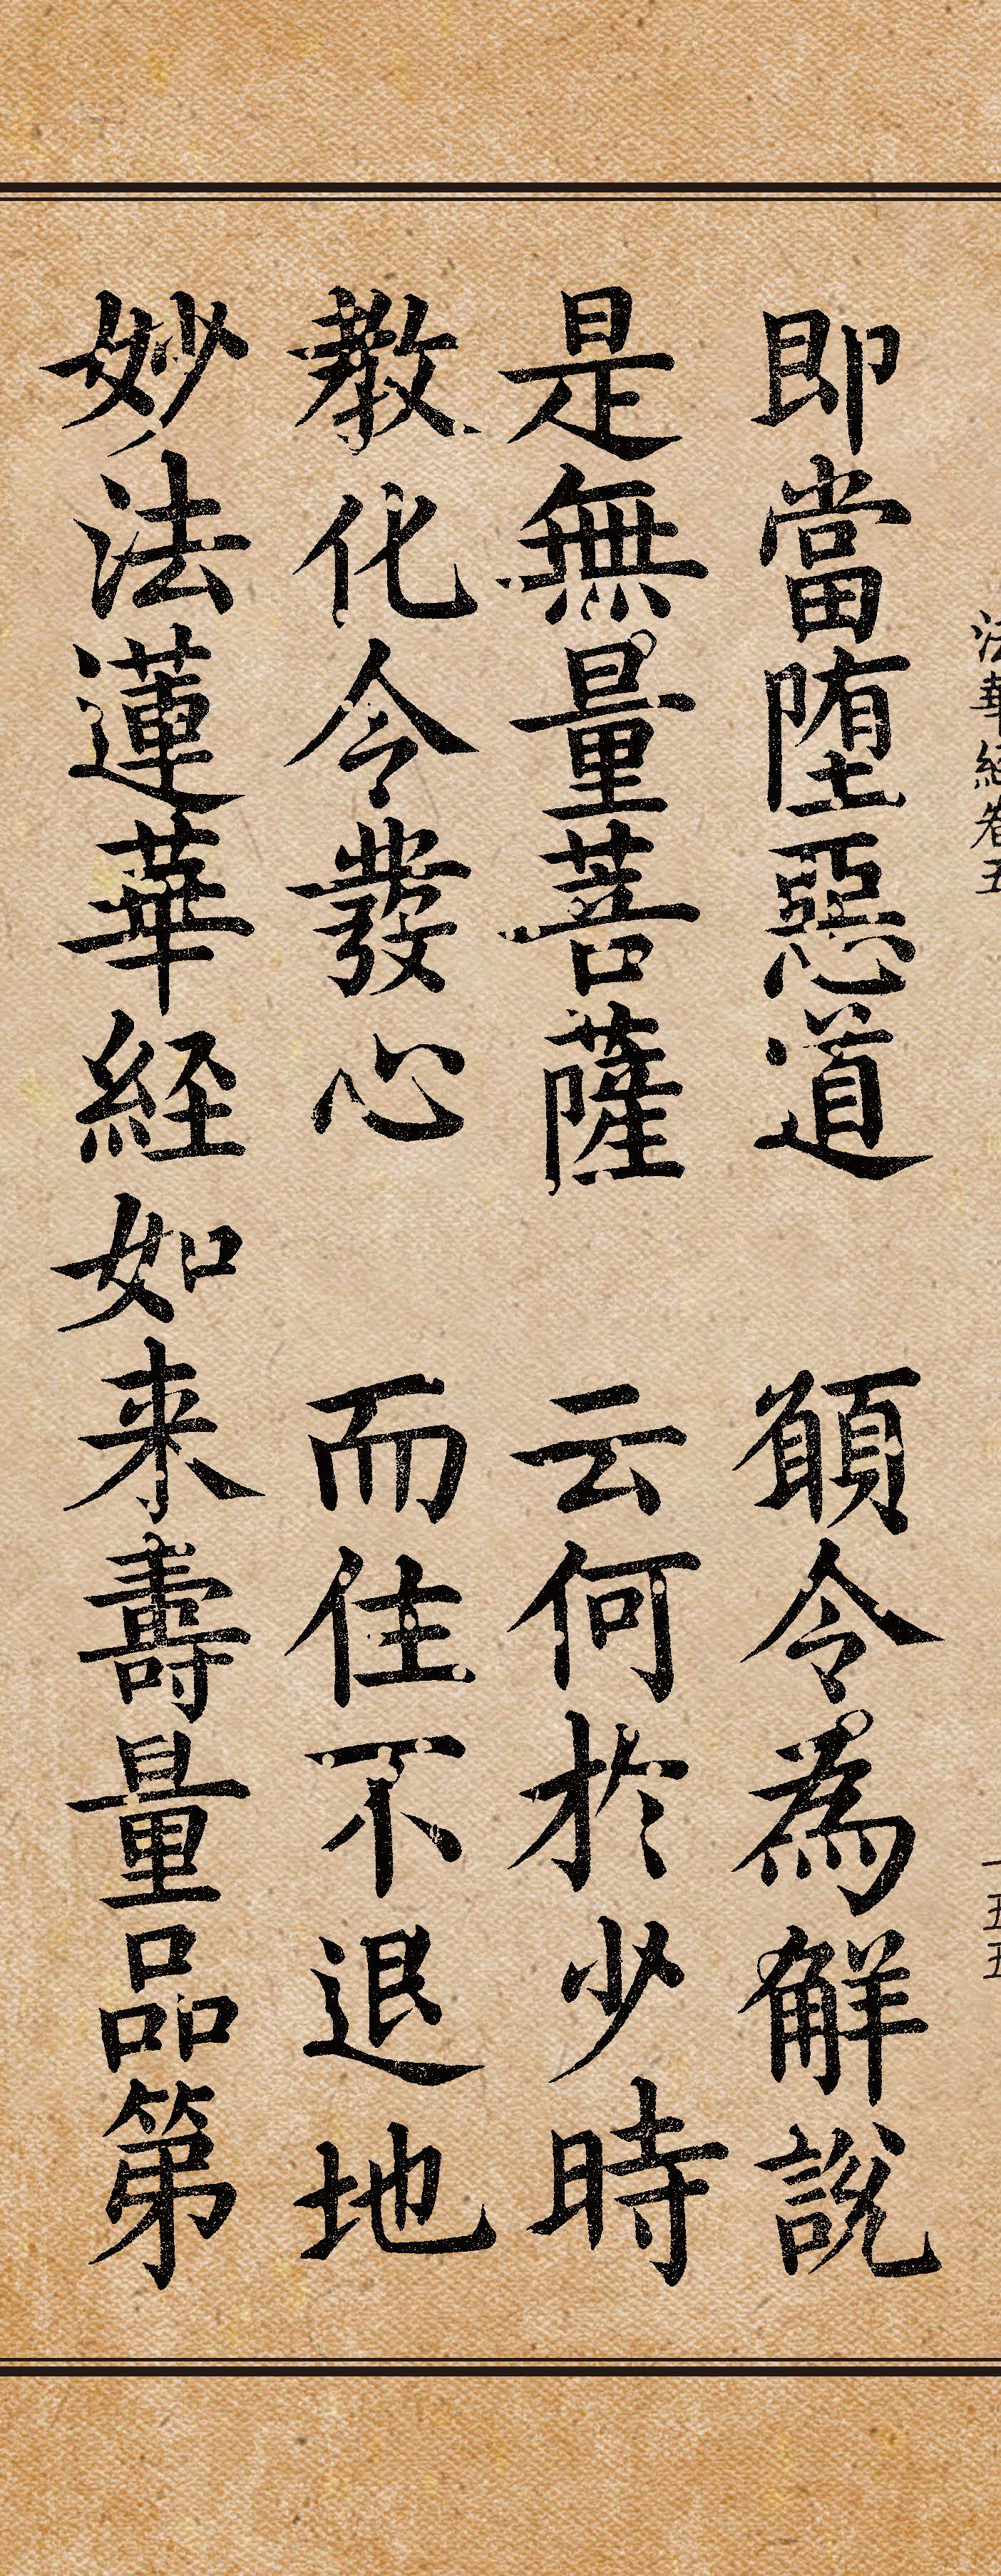 法華経巻五
一五五
即當堕惡道　願令為解説
是無量菩薩　云何於少時
教化令發心　而住不退地
妙法蓮華経如来壽量品第